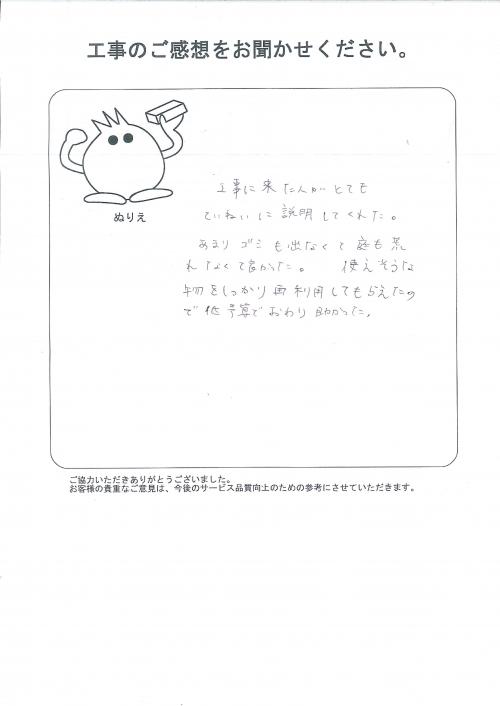 工事のご感想をお聞かせください。
ぬりえ
工事に来た人がとても
ていねいに説明してくれた。
あまりゴミも出なくて庭も荒
れなくて良かった。 使えそうな
物をしっかり再利用してもらえたの
で低予算でおわり助かった。
ご協力いただきありがとうございました。
お客様の貴重なご意見は、今後のサービス品質向上のための参考にさせていただきます。